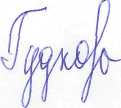 Гудкова